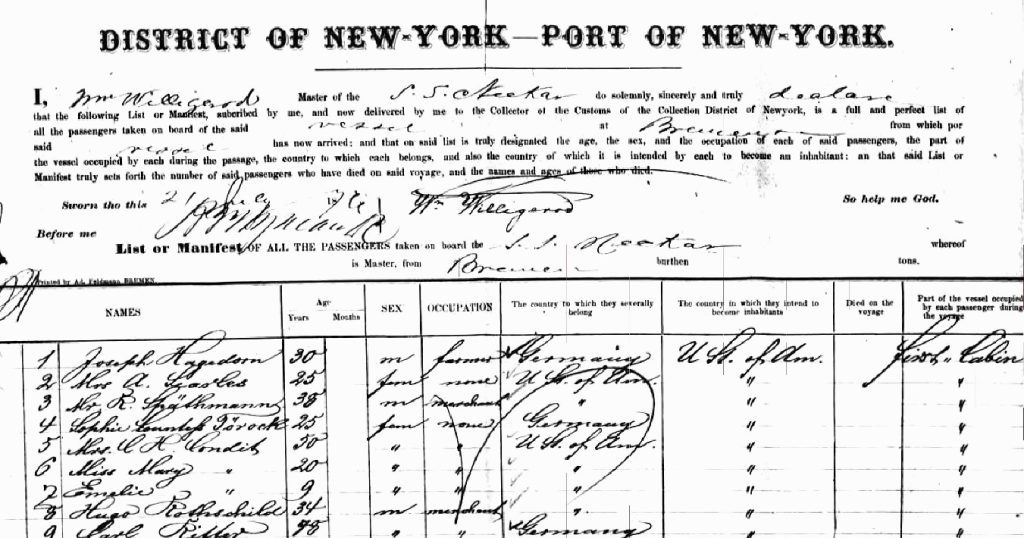 DISTRICT OF NEW-YORK—PORT OF NEW-YORK.
I, Wm Willigerod Master of the S. S. Neckar do solemnly, sincerely and truly declare
that the following List or Manifest, subcribed by me, and now delivered by me to the Collector of the Customs of the Collection District of Newyork, is a full and perfect list of
all the passengers taken on board of the said vessel at Bremen from which por
said vessel has now arrived; and that on said list is truly designated the age, the sex, and the occupation of each of said passengers, the part of
the vessel occupied by each during the passage, the country to which each belongs, and also the country of which it is intended by each to become an inhabitant: an that said List or
Manifest truly sets forth the number of said passengers who have died on said voyage, and the names and ages of those who died.
Sworn tho this 21 July 187 Wm Willigerod So help me God.
Before me
List or Manifest OF ALL THE PASSENGERS taken on board the S. S. Neckar whereof
is Master, from Bremen burthen tons.
Printed by Ad. Feldmann, BREMEN.
NAMES Age Years Months SEX OCCUPATION The country to which they severally belong The country in which they intend to become inhabitants Died on the voyage Part of the vessel occupied by each passenger during the voyage
1 Joseph Hagedorn 30 m farmer Germany U St. of Am. first Cabin
2 Mrs A. Searles 25 fem none U St. of Am. " "
3 Mr R. Späthmann 38 m merchant " " "
4 Sophie Countess Török 25 fem none Germany " "
5 Mrs. C H Condit 50 " " U St. of Am. " "
6 Miss Mary " 20 " " " " "
7 Emelie " 9 " " " " "
8 Hugo Rothschild 34 m merchant " " "
9 Carl Ritter Germany " "